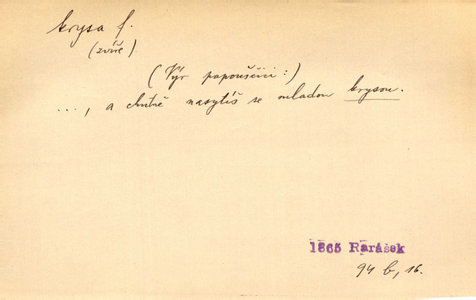 krysa f.
(zvíře)
(Výr papouščici:)
..., a chutně nasytíš se mladou krysou.
1863 Rarášek
94 b, 16.